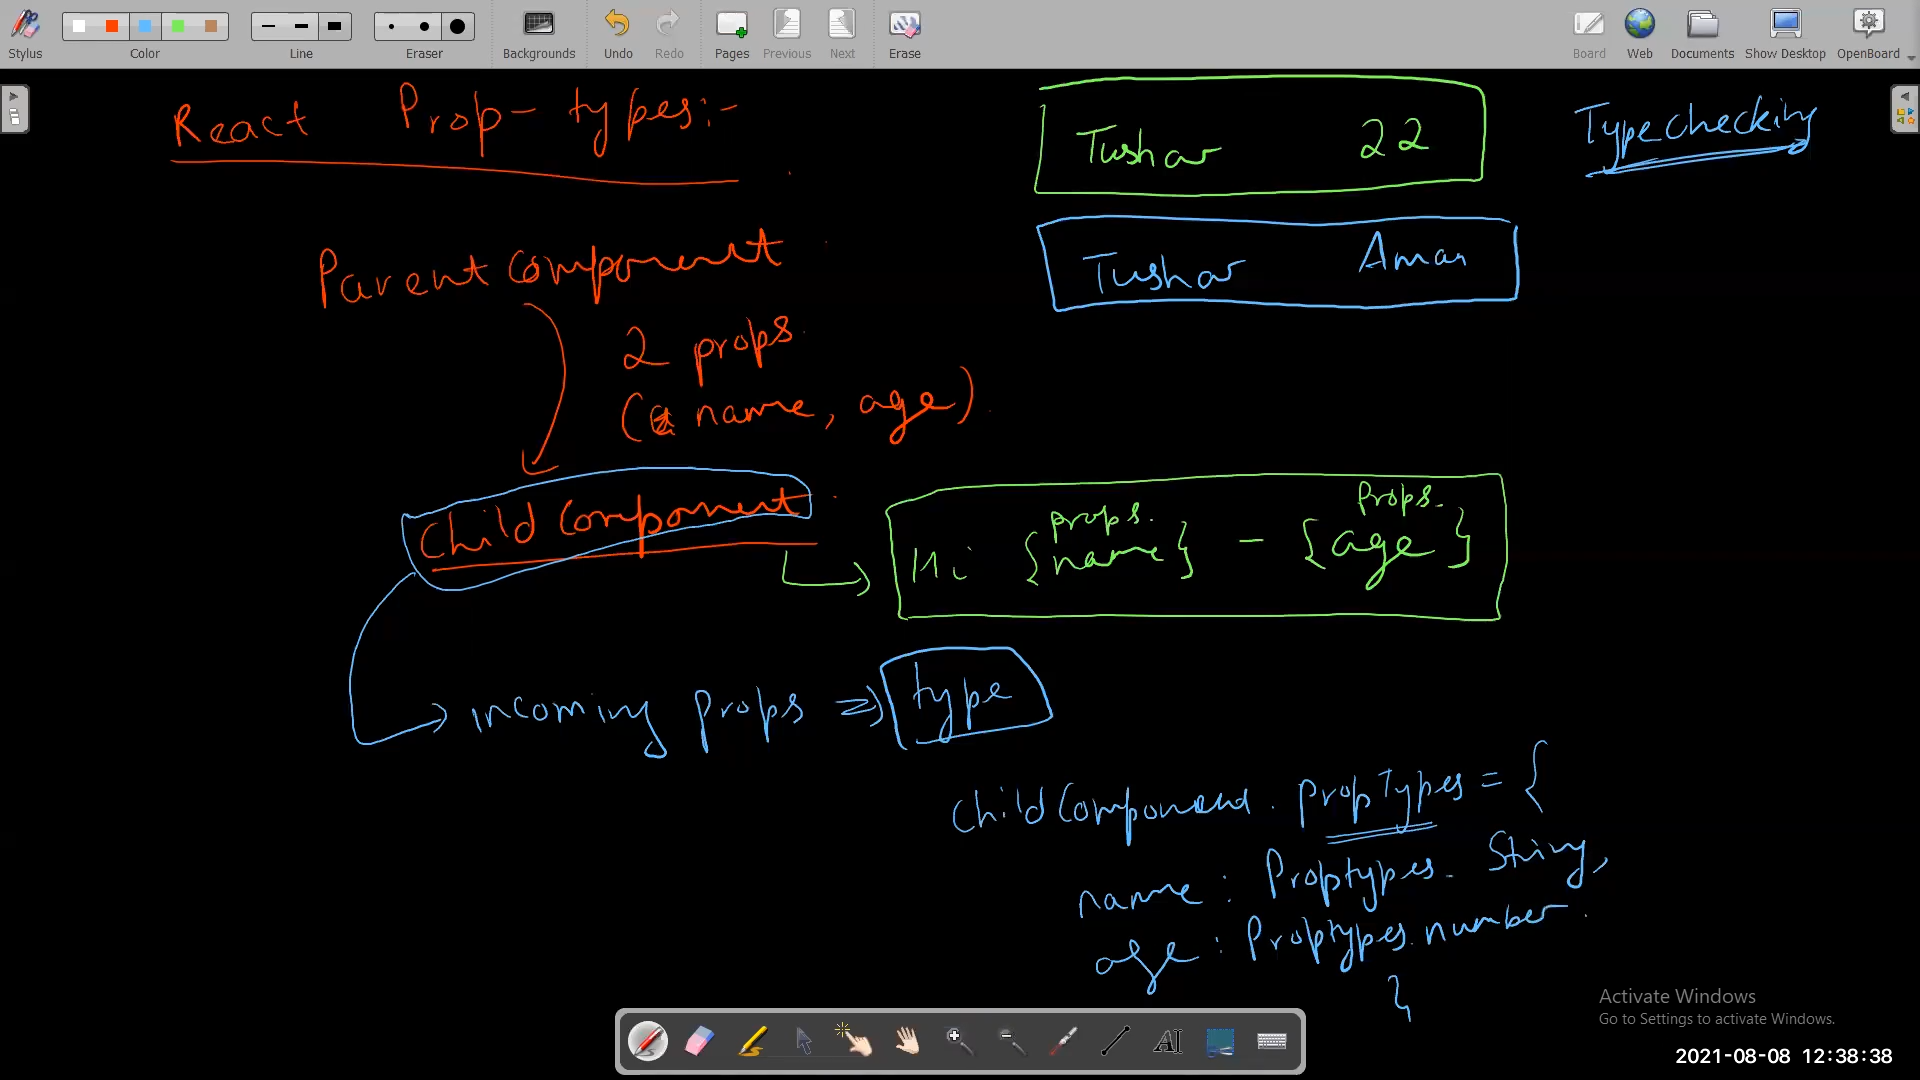 Stylus Color Line Eraser Backgrounds Undo Redo Pages Previous Next Erase Board Web Documents Show Desktop OpenBoard
React Prop-types:-
Tushar 22
Typechecking
Parent Component
Tushar Aman
2 props
(name, age)
Child Component
Hi {props.name} - {props.age}
incoming props => type
ChildComponent.propTypes = {
name: Proptypes.String,
age: Proptypes.number
}
Activate Windows
Go to Settings to activate Windows.
2021-08-08 12:38:38